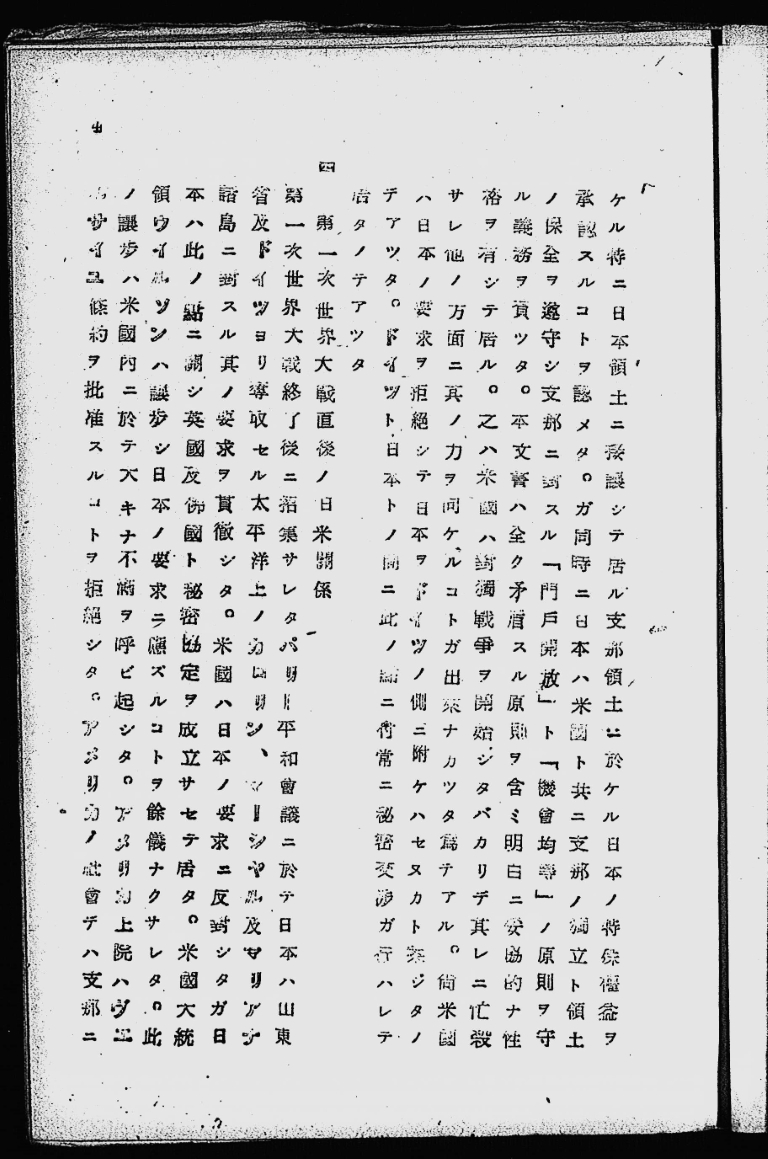 ケル特ニ日本領土ニ接讓シテ居ル支那領土ニ於ケル日本ノ特殊權益ヲ
承認スルコトヲ認メタ。ガ同時ニ日本ハ米國ト共ニ支那ノ獨立ト領土
ノ保全ヲ遵守シ支那ニ對スル「門戶開放」ト「機會均等」ノ原則ヲ守
ル義務ヲ負ツタ。本文書ハ全ク矛盾スル原則ヲ含ミ明白ニ妥協的ナ性
格ヲ有シテ居ル。之ハ米國ハ對獨戰爭ヲ開始シタバカリデ其レニ忙殺
サレ他ノ方面ニ其ノ力ヲ向ケルコトガ出來ナカツタ爲テアル。尙米國
ハ日本ノ要求ヲ拒絕シテ日本ヲドイツノ側ニ附ケハセヌカト案ジタノ
テアツタ。ドイツト日本トノ間ニ此ノ際ニ非常ニ秘密交涉ガ行ハレテ
居タノテアツタ
四 第一次世界大戰直後ノ日米關係
第一次世界大戰終了後ニ招集サレタパリー平和會議ニ於テ日本ハ山東
省及ドイツヨリ奪取セル太平洋上ノカロリン、マーシヤル及マリアナ
諸島ニ對スル其ノ要求ヲ貫徹シタ。米國ハ日本ノ要求ニ反對シタガ日
本ハ此ノ點ニ關シ英國及佛國ト秘密協定ヲ成立サセテ居タ。米國大統
領ウイルソンハ讓步シ日本ノ要求ニ應ズルコトヲ餘儀ナクサレタ。此
ノ讓步ハ米國內ニ於テ大キナ不滿ヲ呼ビ起シタ。アメリカ上院ハヴエ
ルサイユ條約ヲ批准スルコトヲ拒絕シタ。アメリカノ社會デハ支那ニ